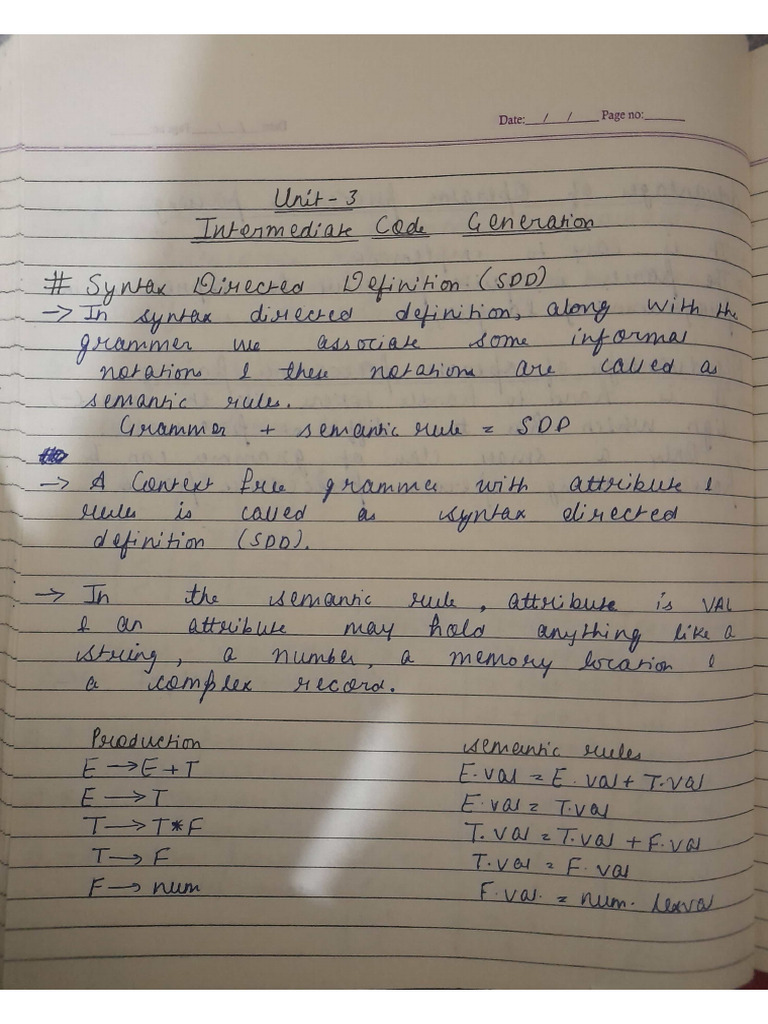 Date: __/__/__ Page no: ____
Unit - 3
Intermediate Code Generation
# Syntax Directed Definition (SDD)
→ In syntax directed definition, along with the
grammer we associate some informal
notations & these notations are called as
semantic rules.
Grammer + semantic rule = SDD
→ A Context free grammer with attribute &
rules is called as syntax directed
definition (SDD).
→ In the semantic rule, attribute is VAL
& an attribute may hold anything like a
string, a number, a memory location &
a complex record.
Production semantic rules
E → E + T E.val = E.val + T.val
E → T E.val = T.val
T → T * F T.val = T.val + F.val
T → F T.val = F.val
F → num F.val. = num. lexval